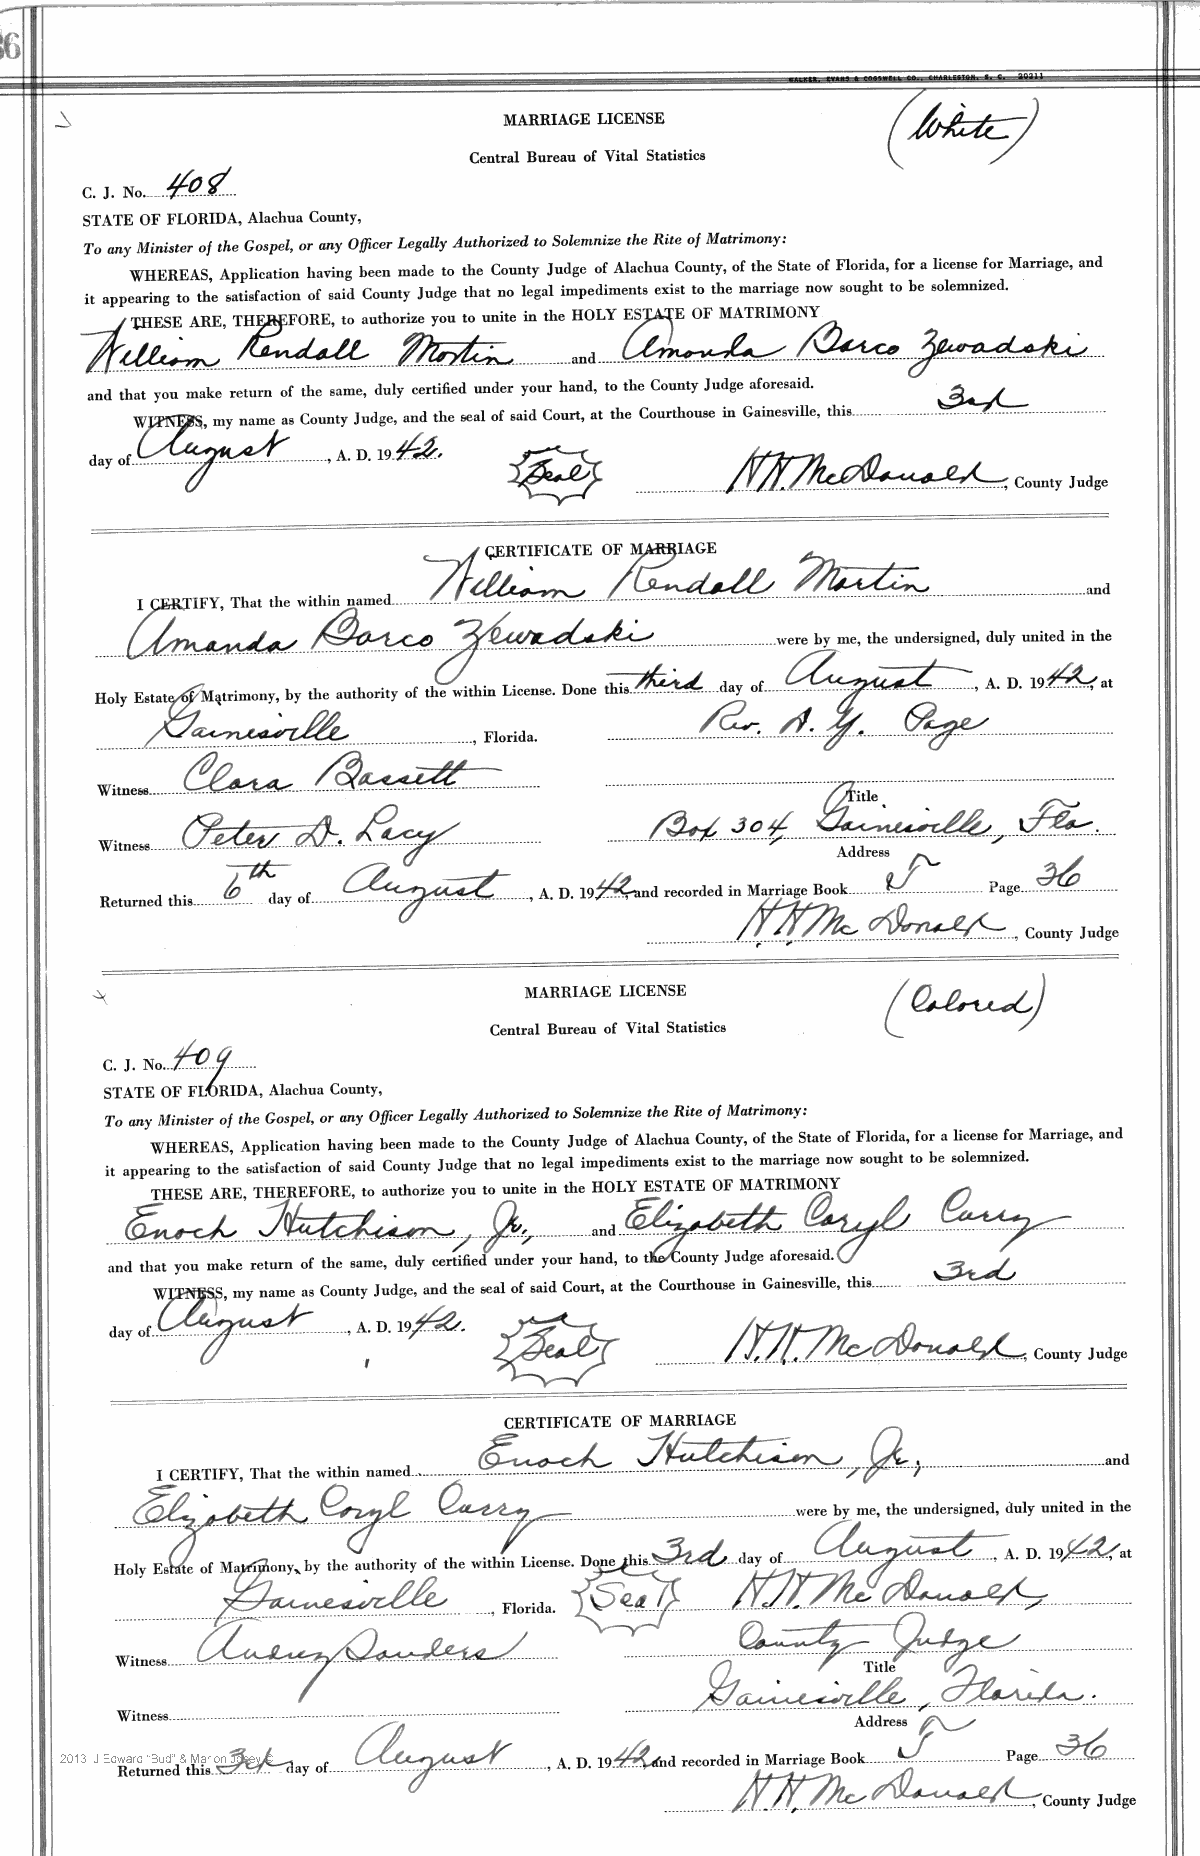 36
WALKER, EVANS & COGSWELL CO., CHARLESTON, S. C. 20211
MARRIAGE LICENSE
(White)
Central Bureau of Vital Statistics
C. J. No. 408
STATE OF FLORIDA, Alachua County,
To any Minister of the Gospel, or any Officer Legally Authorized to Solemnize the Rite of Matrimony:
WHEREAS, Application having been made to the County Judge of Alachua County, of the State of Florida, for a license for Marriage, and
it appearing to the satisfaction of said County Judge that no legal impediments exist to the marriage now sought to be solemnized.
THESE ARE, THEREFORE, to authorize you to unite in the HOLY ESTATE OF MATRIMONY
William Kendall Martin and Amanda Barco Zewadski
and that you make return of the same, duly certified under your hand, to the County Judge aforesaid.
WITNESS, my name as County Judge, and the seal of said Court, at the Courthouse in Gainesville, this 3rd
day of August, A. D. 1942.
Seal
H.H. McDonald, County Judge
CERTIFICATE OF MARRIAGE
I CERTIFY, That the within named William Kendall Martin and
Amanda Barco Zewadski were by me, the undersigned, duly united in the
Holy Estate of Matrimony, by the authority of the within License. Done this third day of August, A. D. 1942, at
Gainesville, Florida. Rev. A. Y. Page
Witness Clara Bassett
Title
Witness Peter D. Lacy Box 304, Gainesville, Fla.
Address
Returned this 6th day of August, A. D. 1942, and recorded in Marriage Book Page 36
H.H. McDonald, County Judge
MARRIAGE LICENSE
(Colored)
Central Bureau of Vital Statistics
C. J. No. 409
STATE OF FLORIDA, Alachua County,
To any Minister of the Gospel, or any Officer Legally Authorized to Solemnize the Rite of Matrimony:
WHEREAS, Application having been made to the County Judge of Alachua County, of the State of Florida, for a license for Marriage, and
it appearing to the satisfaction of said County Judge that no legal impediments exist to the marriage now sought to be solemnized.
THESE ARE, THEREFORE, to authorize you to unite in the HOLY ESTATE OF MATRIMONY
Enoch Hutchison, Jr., and Elizabeth Coryl Curry
and that you make return of the same, duly certified under your hand, to the County Judge aforesaid.
WITNESS, my name as County Judge, and the seal of said Court, at the Courthouse in Gainesville, this 3rd
day of August, A. D. 1942.
Seal
H.H. McDonald, County Judge
CERTIFICATE OF MARRIAGE
I CERTIFY, That the within named Enoch Hutchison, Jr., and
Elizabeth Coryl Curry were by me, the undersigned, duly united in the
Holy Estate of Matrimony, by the authority of the within License. Done this 3rd day of August, A. D. 1942, at
Gainesville, Florida. Seal H.H. McDonald,
Witness Audrey Sanders County Judge
Title
Gainesville, Florida.
Witness
Address
2013 J Edward "Bud" & Marion Josey ©
Returned this 3rd day of August, A. D. 1942, and recorded in Marriage Book Page 36
H.H. McDonald, County Judge